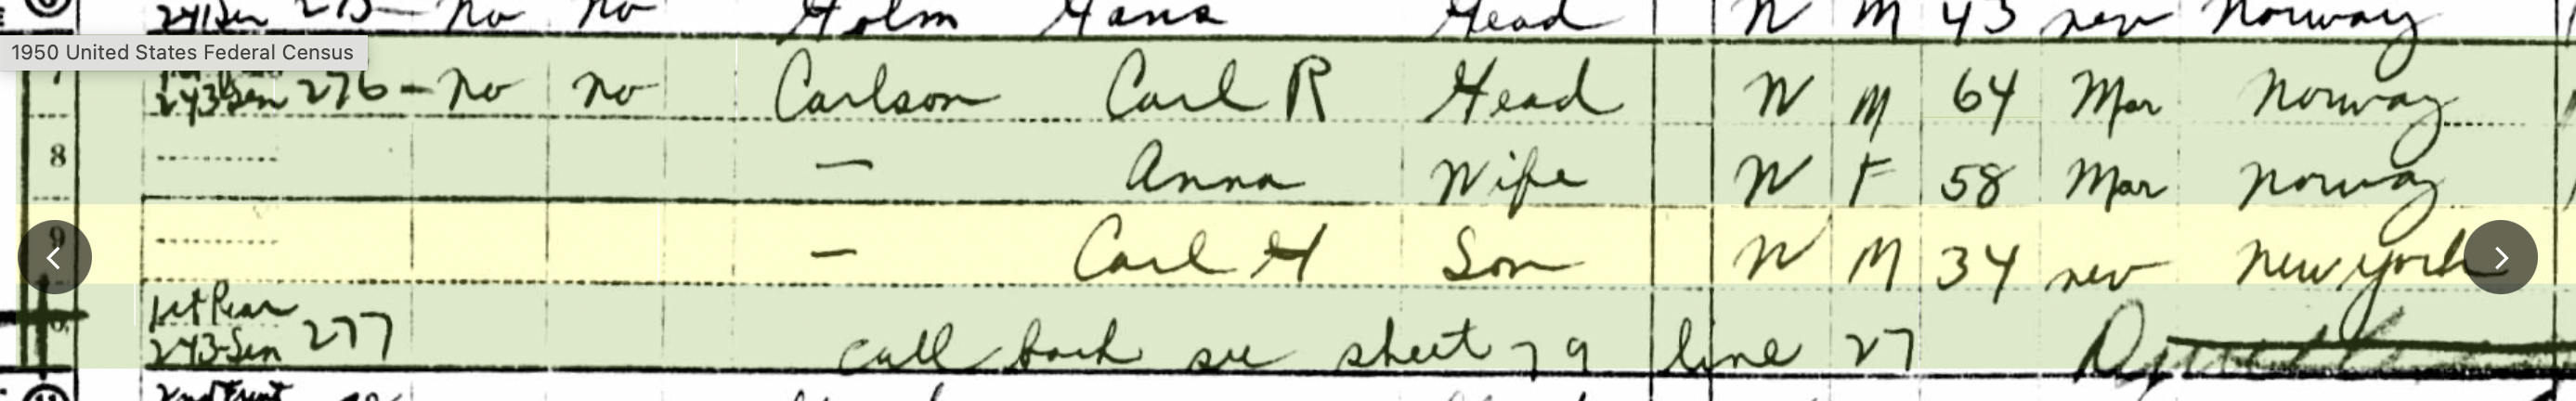 275 - no no Holm Hans Head W M 43 nev Norway
1950 United States Federal Census
7 243 Sen 276 - no no Carlson Carl R Head W M 64 Mar Norway
8 — Anna Wife W F 58 Mar Norway
9 — Carl H Son W M 34 nev New York
1st Rear
243 Sen 277 call back see sheet 79 line 27
2nd Front